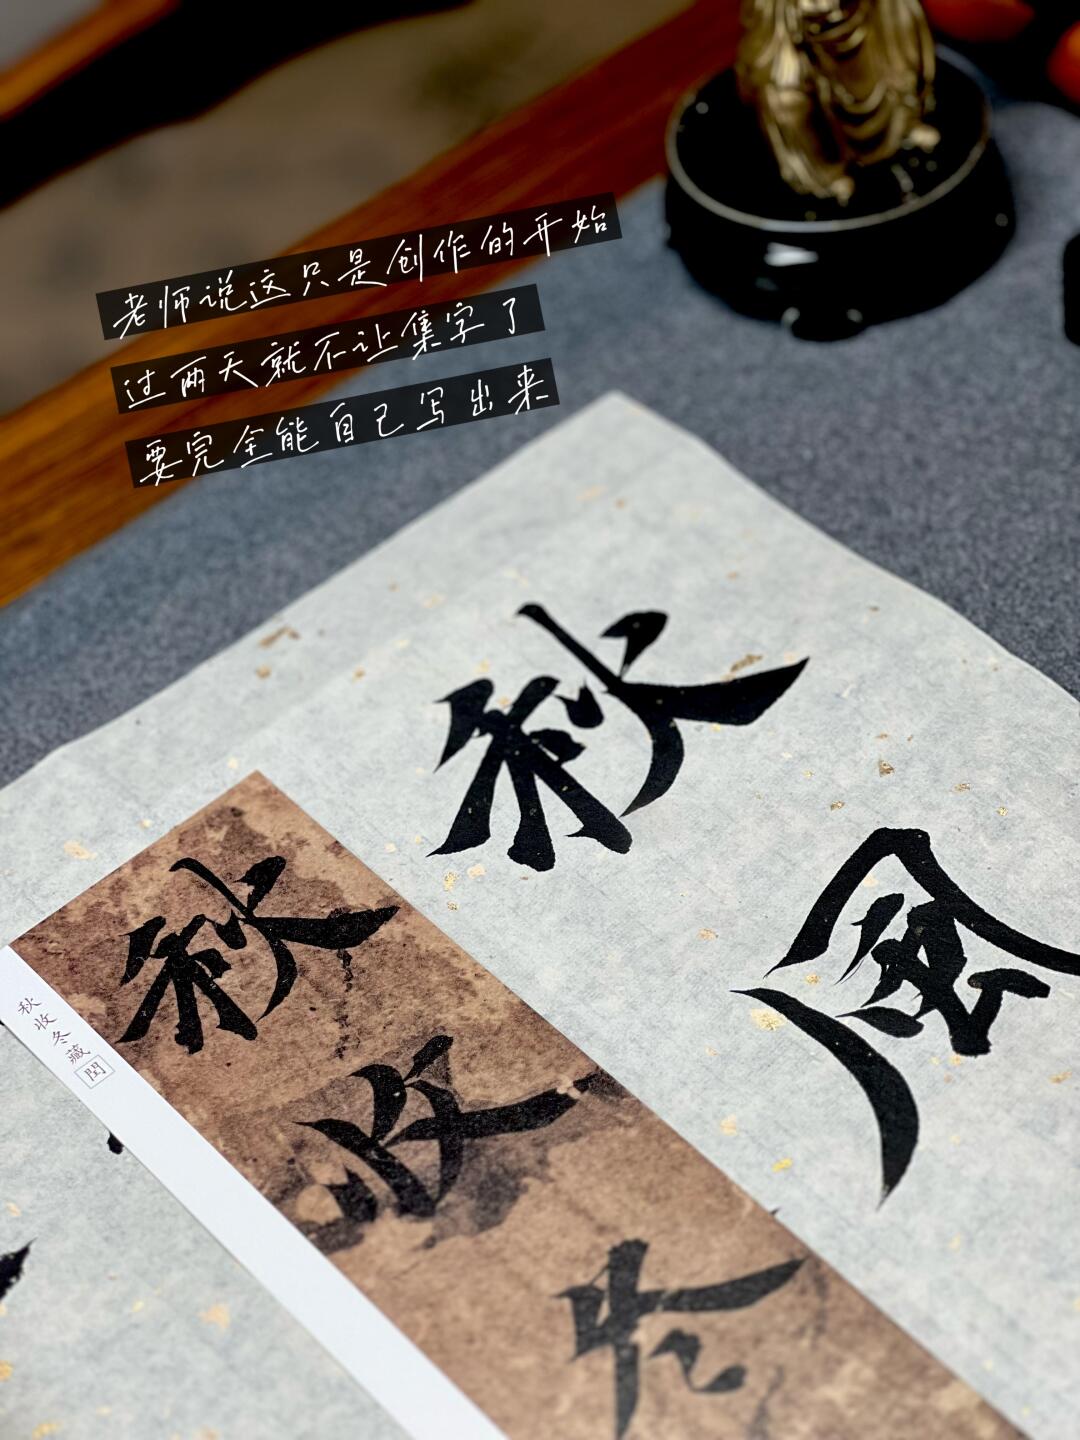 老师说这只是创作的开始
过两天就不让集字了
要完全能自己写出来
秋風
秋收冬
秋收冬藏閏